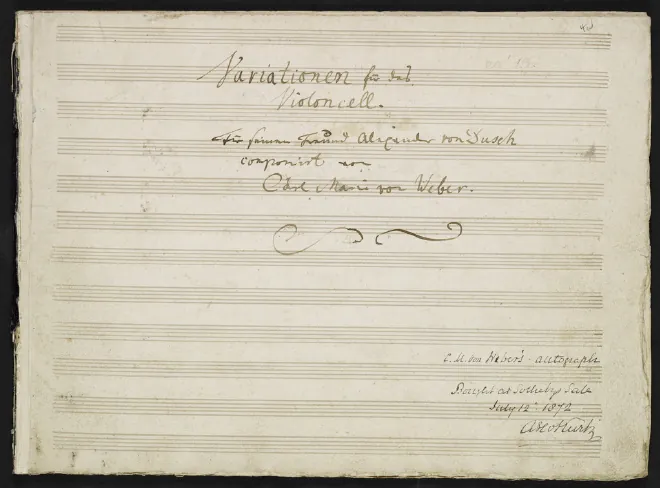 Variationen für das
Violoncell.
Für seinen Freund Alexander von Dusch
componirt von
Carl Maria von Weber.
C. M. von Weber's - autograph
Bought at Sothebys Sale
July 12th. 1872